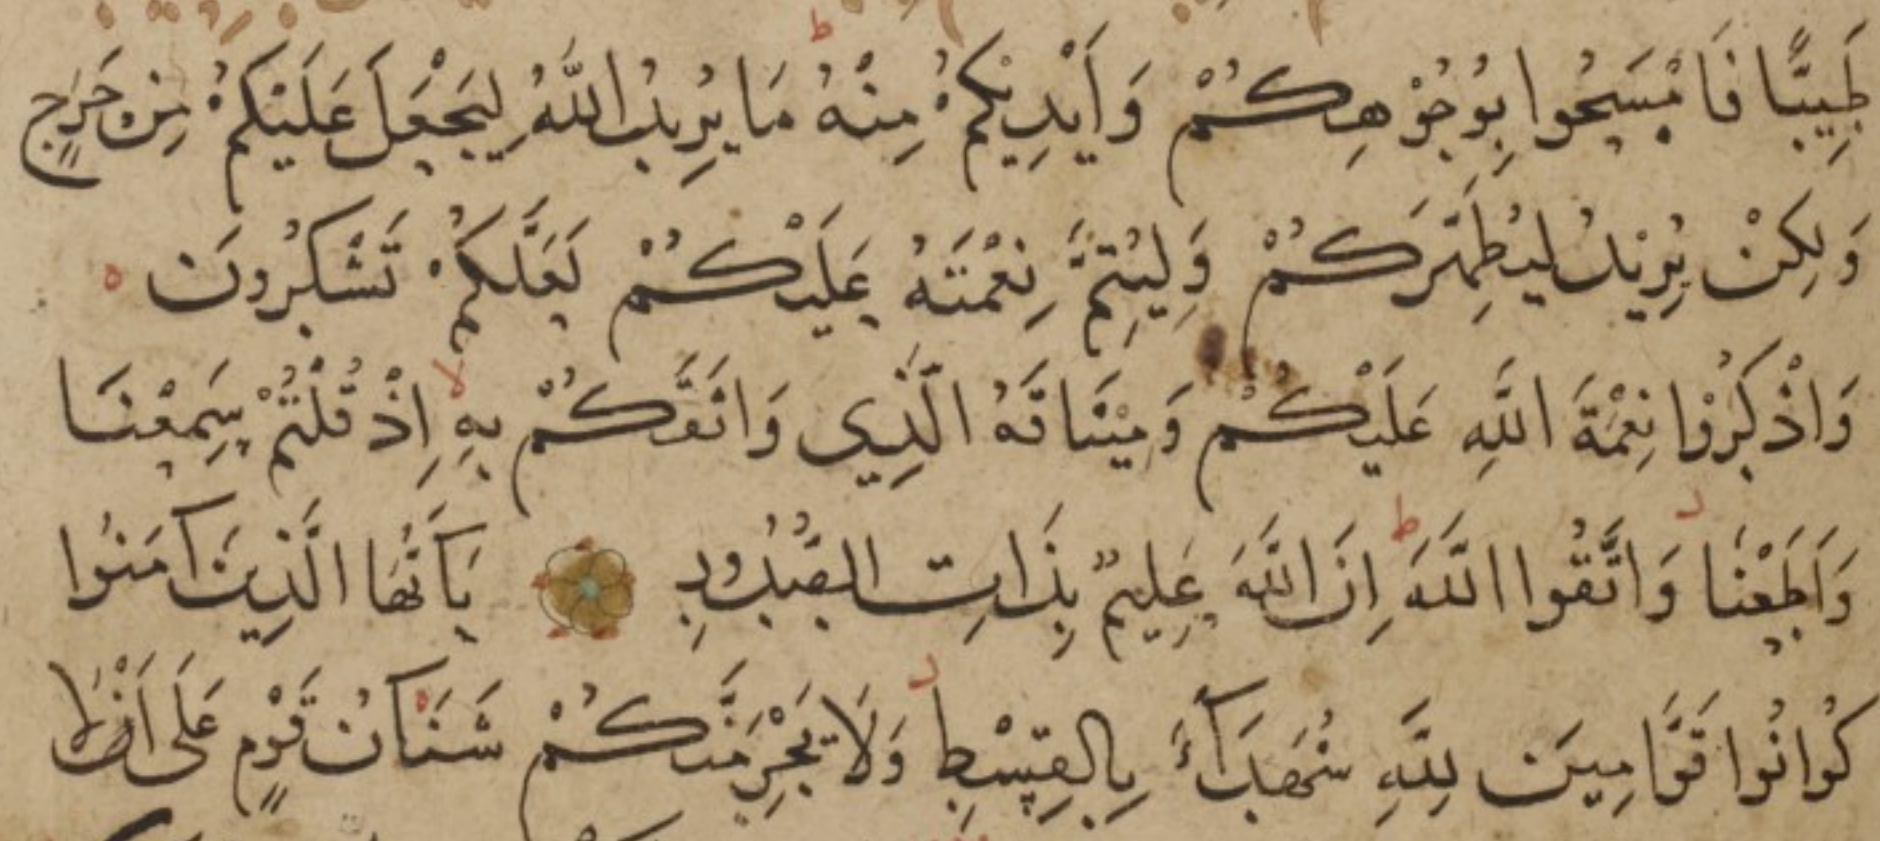 طَيِّبًا فَامْسَحُوا بِوُجُوْهِكُمْ وَأَيْدِيْكُمْ مِنْهُ مَا يُرِيدُ اللَّهُ لِيَجْعَلَ عَلَيْكُمْ مِنْ حَرَجٍ
وَلٰكِنْ يُرِيْدُ لِيُطَهِّرَكُمْ وَلِيُتِمَّ نِعْمَتَهُ عَلَيْكُمْ لَعَلَّكُمْ تَشْكُرُونَ ه
وَاذْكُرُوْا نِعْمَةَ اللَّهِ عَلَيْكُمْ وَمِيْثَاقَهُ الَّذِي وَاثَقَكُمْ بِهِ إِذْ قُلْتُمْ سَمِعْنَا
وَأَطَعْنَا وَاتَّقُوا اللَّهَ إِنَّ اللَّهَ عَلِيمٌ بِذَاتِ الصُّدُورِ يَا أَيُّهَا الَّذِينَ آمَنُوا
كُوْنُوا قَوَّامِينَ لِلَّهِ شُهَدَآءَ بِالْقِسْطِ وَلَا يَجْرِمَنَّكُمْ شَنَآنُ قَوْمٍ عَلَى